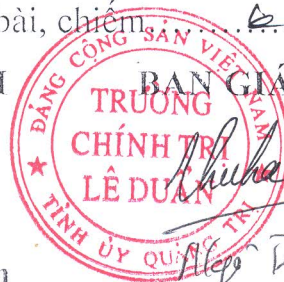 bài, chiếm.........6..
BAN GIÁ
ĐẢNG CỘNG SẢN VIỆT NAM
TRƯỜNG
CHÍNH TRỊ
LÊ DUẨN
TỈNH ỦY QUẢNG TRỊ